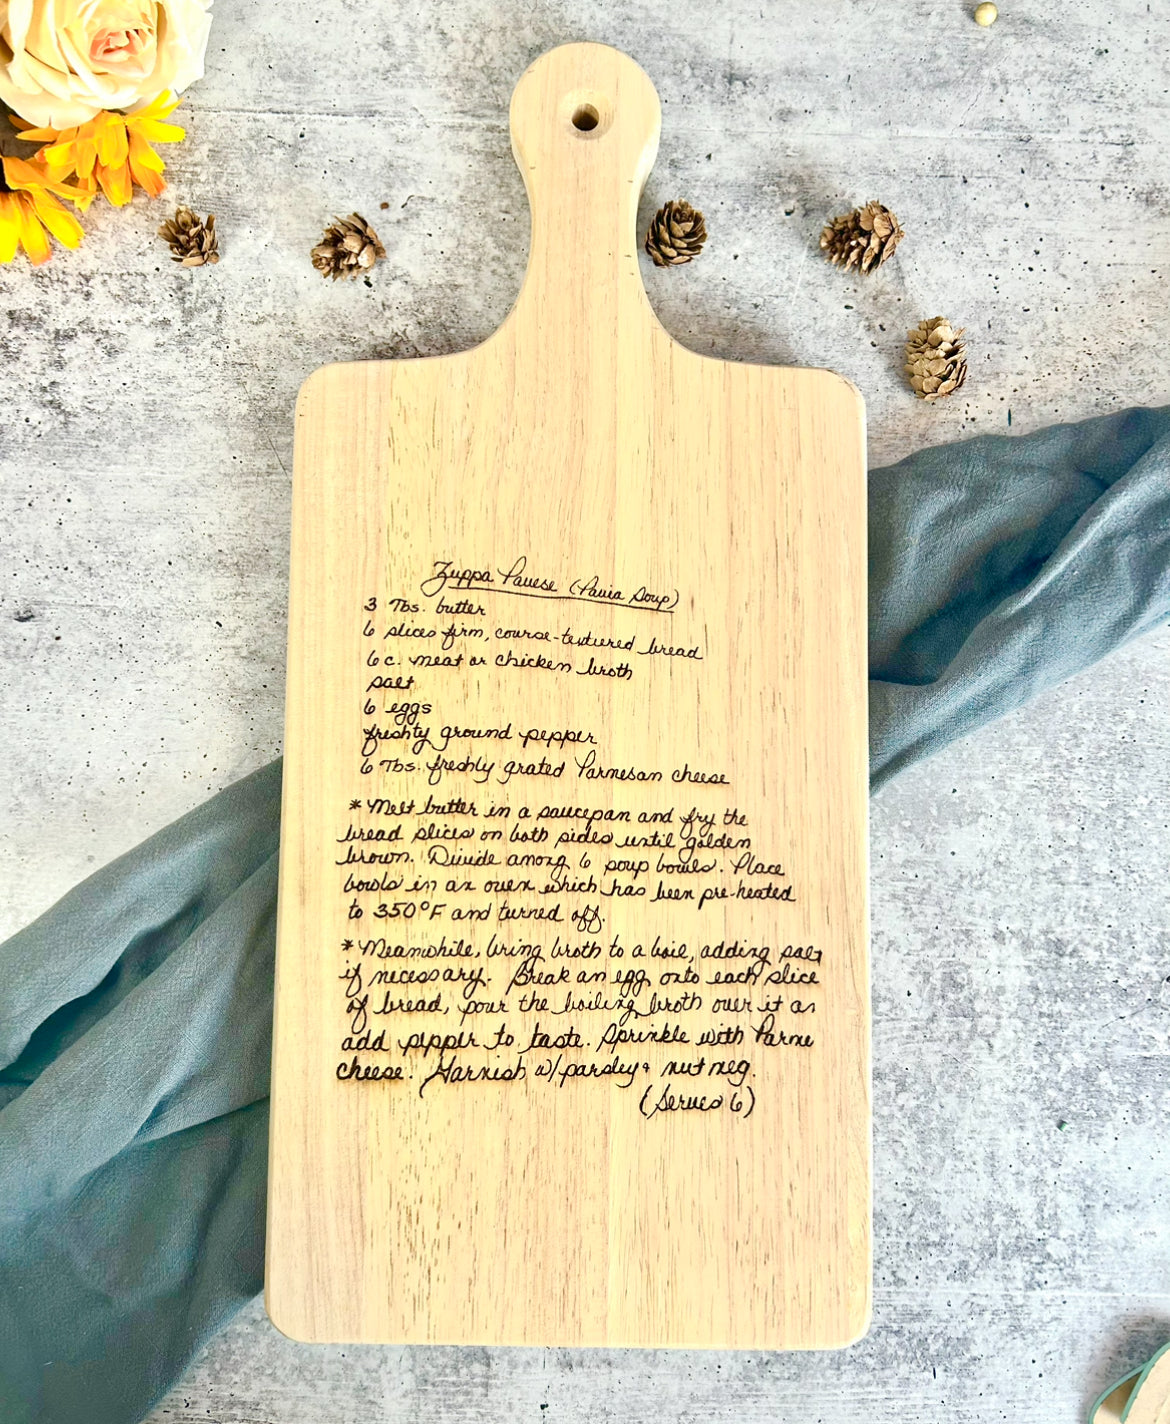 Zuppa Pavese (Pavia Soup)
3 Tbs. butter
6 slices firm, course-textured bread
6 c. meat or chicken broth
salt
6 eggs
freshty ground pepper
6 Tbs. freshly grated Parnesan cheese
* Melt butter in a saucepan and fry the
bread slices on both sides until golden
brown. Divide among 6 soup bowls. Place
bowls in an oven which has been pre-heated
to 350°F and turned off.
* Meanwhile, bring broth to a boil, adding salt
if necessary. Break an egg onto each slice
of bread, pour the boiling broth over it an
add pepper to taste. Sprinkle with Parme
cheese. Garnish w/parsley & nutmeg.
(Serves 6)